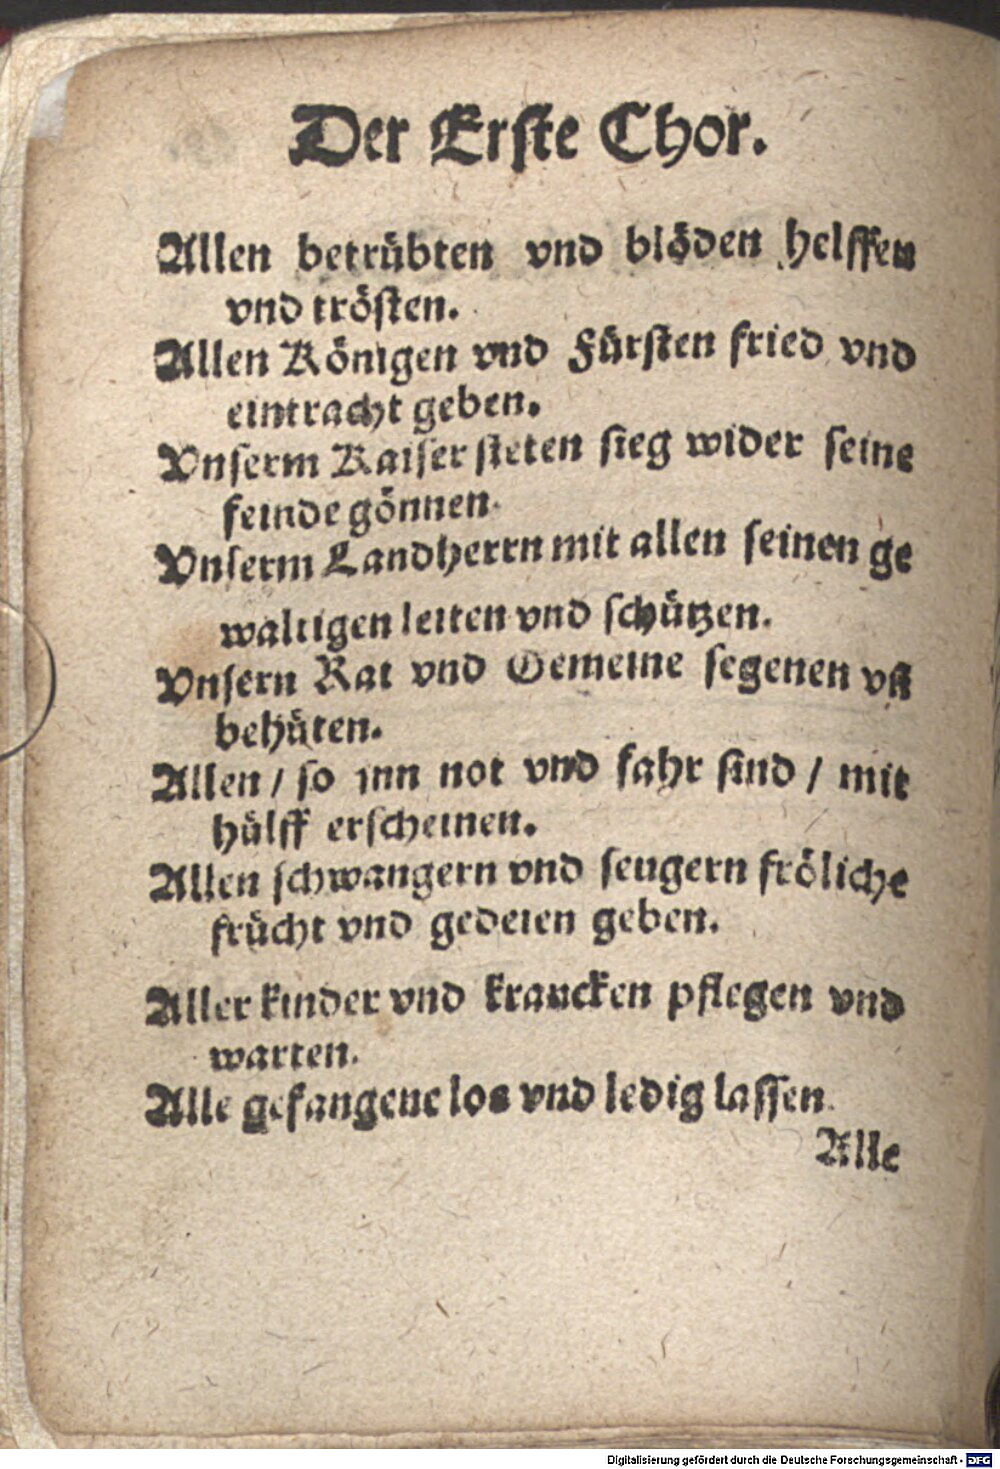 Der Erste Chor.
Allen betrübten vnd blöden helffen
vnd trösten.
Allen Königen vnd Fürsten fried vnd
eintracht geben.
Vnserm Kaiser steten sieg wider seine
feinde gönnen.
Vnserm Landherrn mit allen seinen ge
waltigen leiten vnd schützen.
Vnsern Rat vnd Gemeine segenen vñ
behüten.
Allen / so inn not vnd fahr sind / mit
hülff erscheinen.
Allen schwangern vnd seugern fröliche
frücht vnd gedeien geben.
Aller kinder vnd krancken pflegen vnd
warten.
Alle gefangene los vnd ledig lassen.
Alle
Digitalisierung gefördert durch die Deutsche Forschungsgemeinschaft - DFG